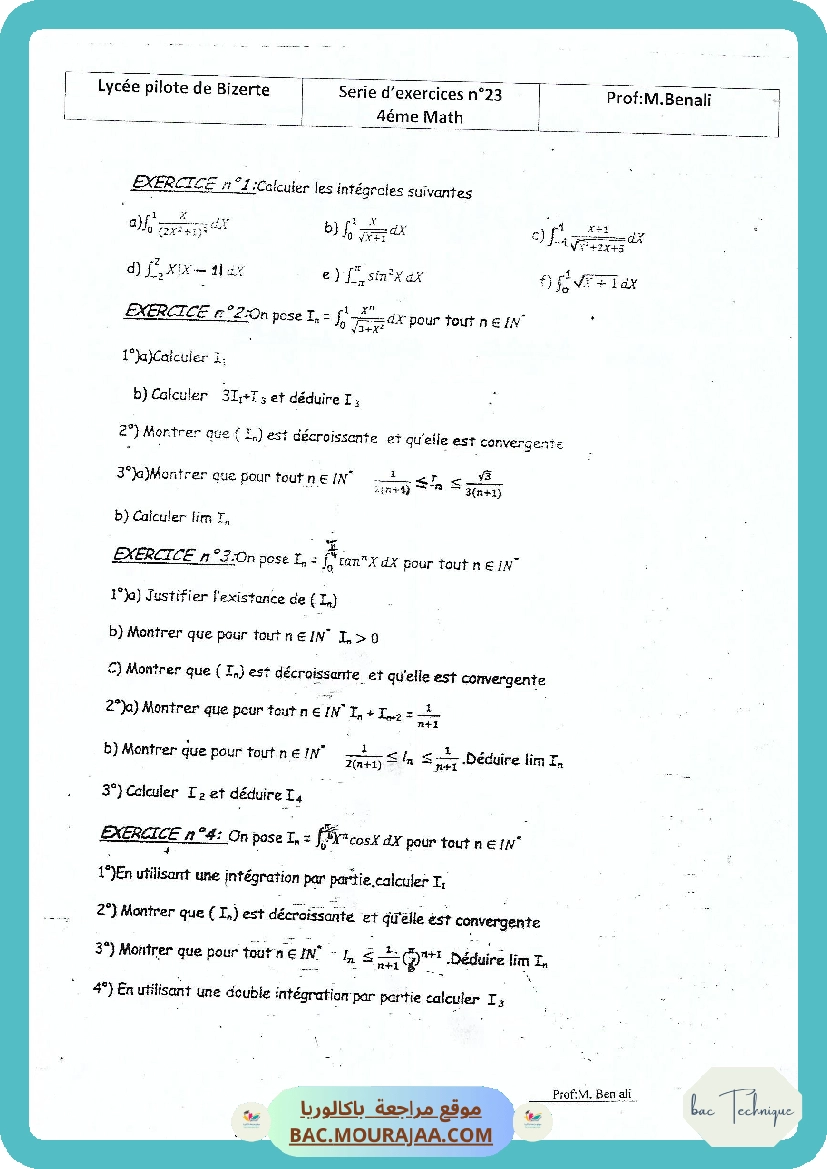 Lycée pilote de Bizerte
Serie d'exercices n°23
4éme Math
Prof:M.Benali
EXERCICE n°1:Calculer les intégrales suivantes
a)∫₀¹ X/(2X²+1)² dX b) ∫₀¹ X/√(X+1) dX c) ∫₋₁¹ (X+1)/√(X²+2X+5) dX
d) ∫₋₂² X|X − 1| dX e ) ∫₋π^π sin²X dX f) ∫₀¹ √(X + 1) dX
EXERCICE n°2:On pose Iₙ = ∫₀¹ Xⁿ/√(3+X²) dX pour tout n ∈ IN*
1°)a)Calculer I₁
b) Calculer 3I₁+I₃ et déduire I₃
2°) Montrer que ( Iₙ) est décroissante et qu'elle est convergente
3°)a)Montrer que pour tout n ∈ IN* 1/(2(n+1)) ≤ Iₙ ≤ √3/(3(n+1))
b) Calculer lim Iₙ
EXERCICE n°3:On pose Iₙ = ∫₀ tanⁿX dX pour tout n ∈ IN*
1°)a) Justifier l'existance de ( Iₙ)
b) Montrer que pour tout n ∈ IN* Iₙ > 0
C) Montrer que ( Iₙ) est décroissante et qu'elle est convergente
2°)a) Montrer que pour tout n ∈ IN* Iₙ + Iₙ₊₂ = 1/(n+1)
b) Montrer que pour tout n ∈ IN* 1/(2(n+1)) ≤ Iₙ ≤ 1/(n+1) .Déduire lim Iₙ
3°) Calculer I₂ et déduire I₄
EXERCICE n°4: On pose Iₙ = ∫₀ Xⁿcos X dX pour tout n ∈ IN*
1°)En utilisant une intégration par partie,calculer I₁
2°) Montrer que ( Iₙ) est décroissante et qu'elle est convergente
3°) Montrer que pour tout n ∈ IN* Iₙ ≤ 1/(n+1) ( )ⁿ⁺¹ .Déduire lim Iₙ
4°) En utilisant une double intégration par partie calculer I₃
Prof:M. Ben ali
bac Technique
موقع مراجعة باكالوريا
BAC.MOURAJAA.COM